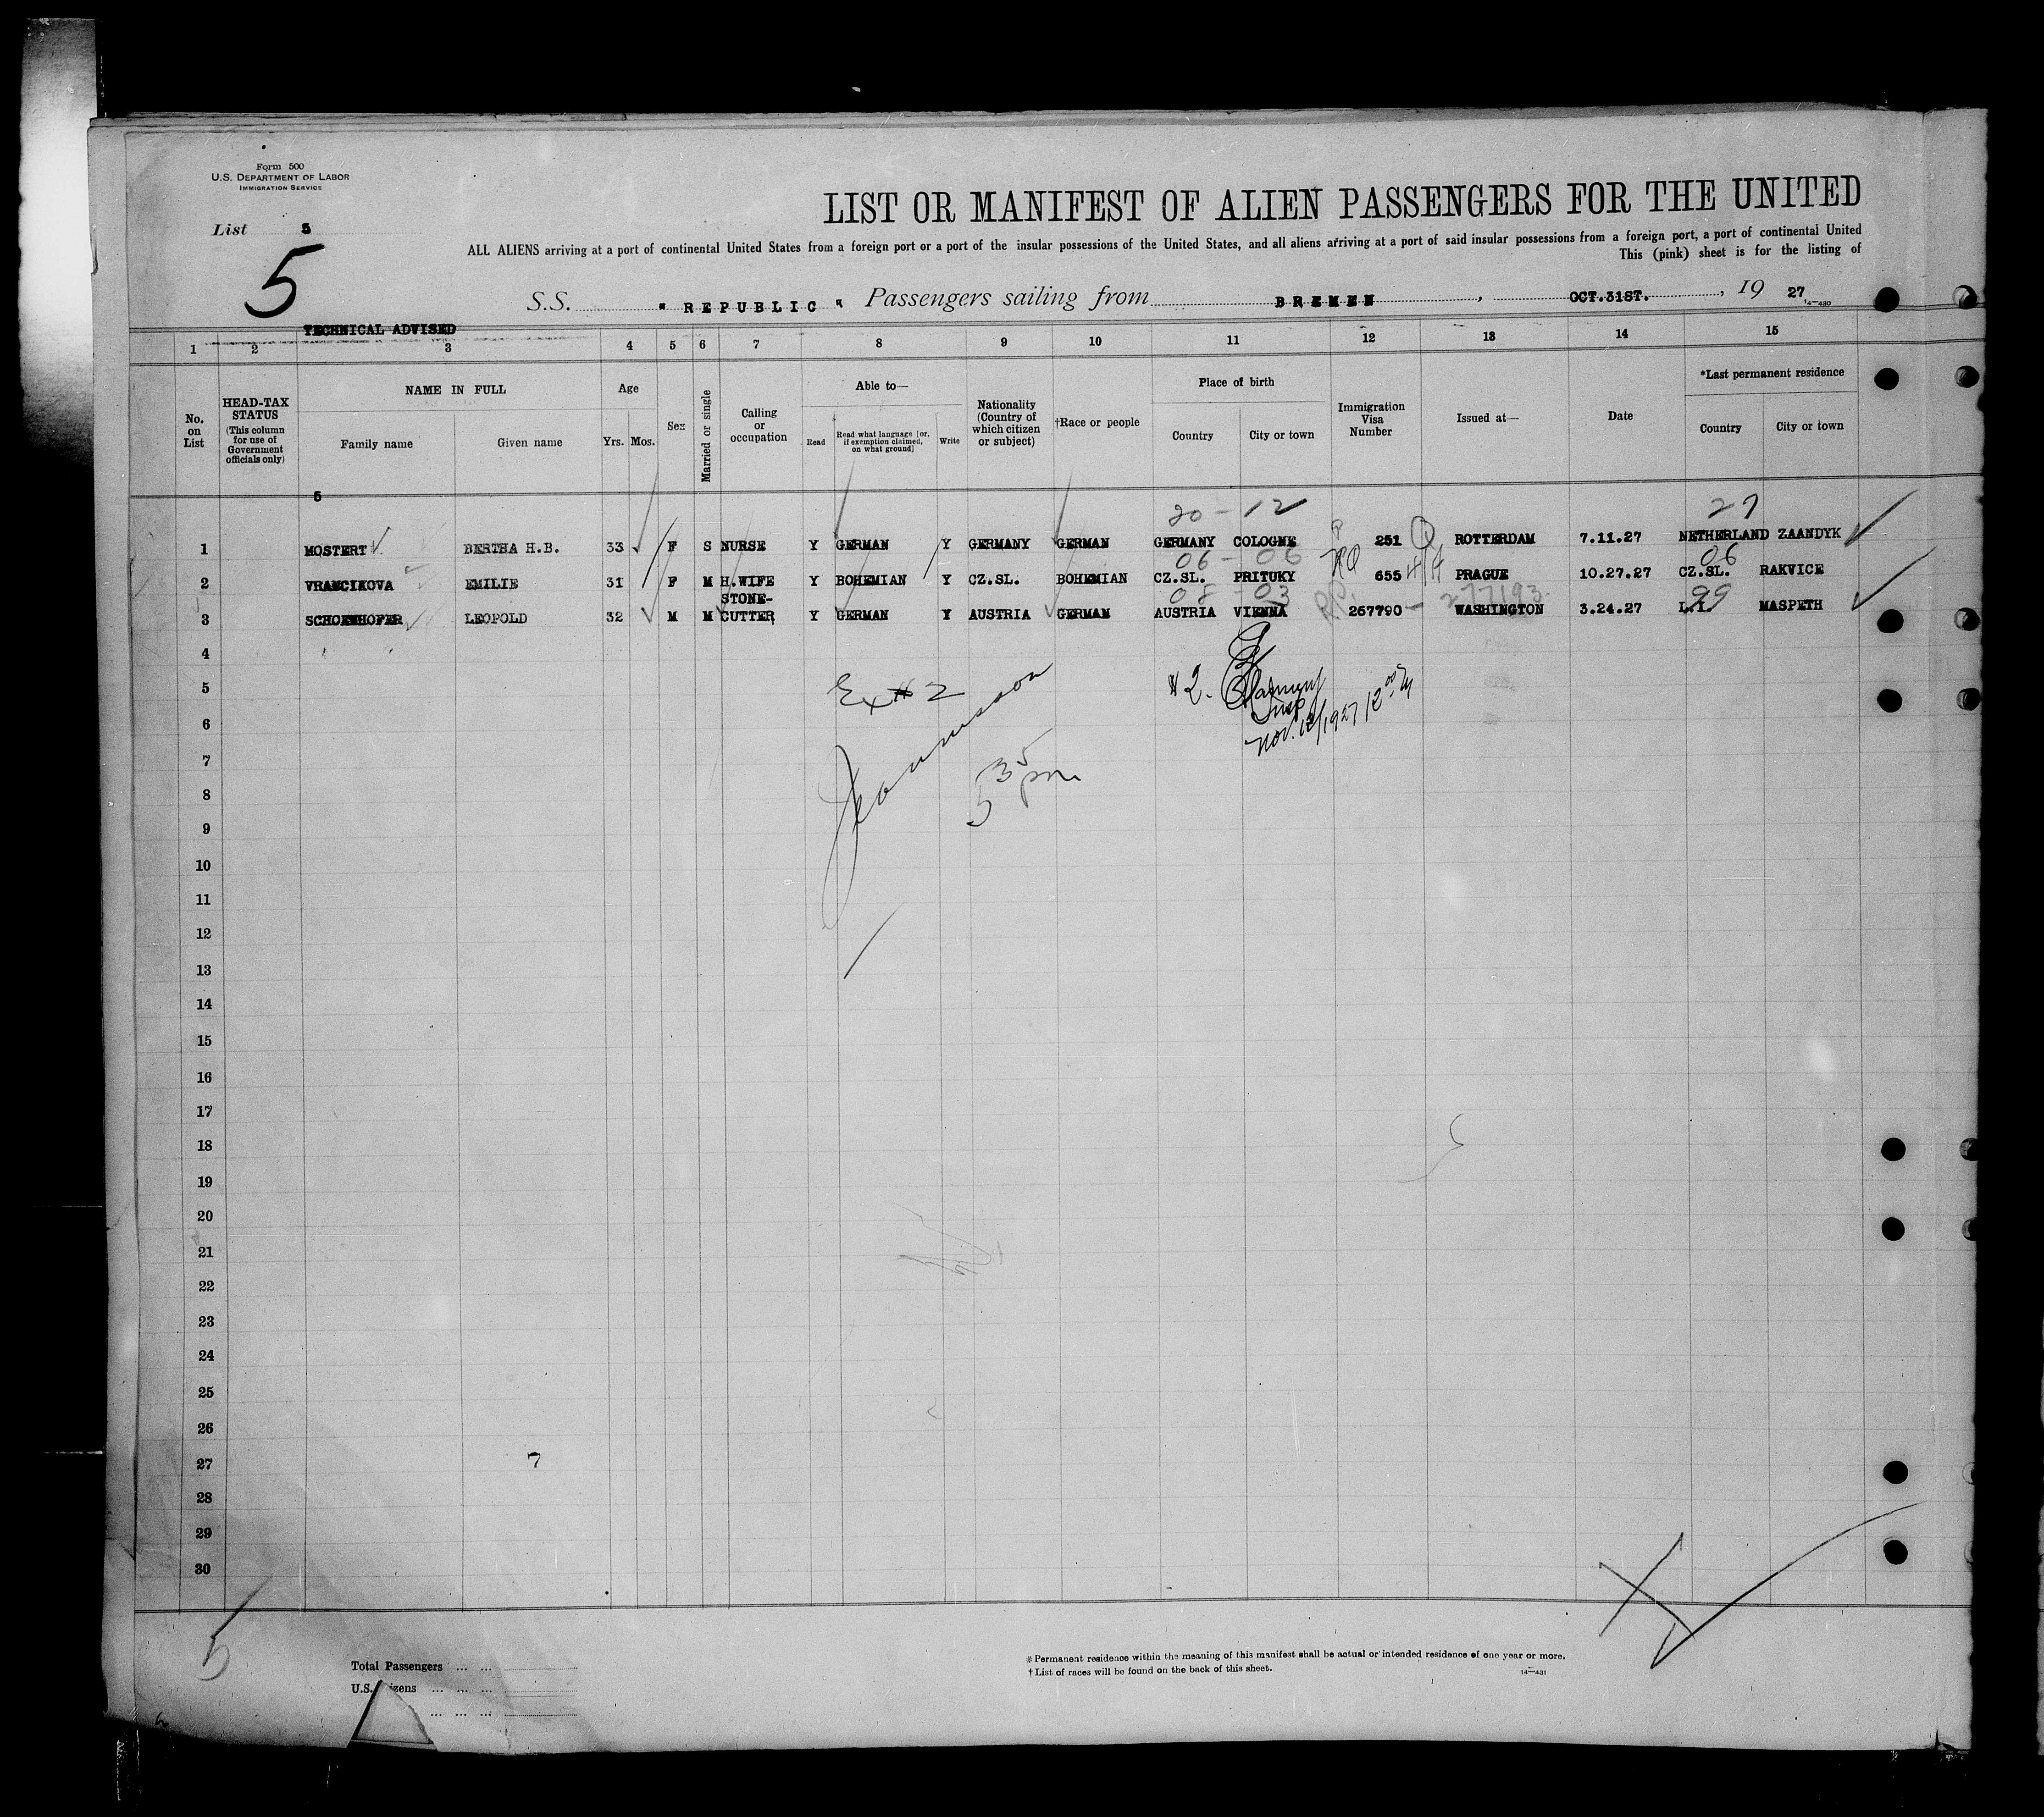 Form 500
U.S. DEPARTMENT OF LABOR
IMMIGRATION SERVICE
LIST OR MANIFEST OF ALIEN PASSENGERS FOR THE UNITED
List 5
5
ALL ALIENS arriving at a port of continental United States from a foreign port or a port of the insular possessions of the United States, and all aliens arriving at a port of said insular possessions from a foreign port, a port of continental United
This (pink) sheet is for the listing of
S.S. "REPUBLIC" Passengers sailing from BREMEN, OCT.31ST., 19 27
14—430
TECHNICAL ADVISED
1 2 3 4 5 6 7 8 9 10 11 12 13 14 15
No. on List
HEAD-TAX STATUS (This column for use of Government officials only)
NAME IN FULL
Family name Given name
Age
Yrs. Mos.
Sex
Married or single
Calling or occupation
Able to—
Read Read what language [or, if exemption claimed, on what ground] Write
Nationality (Country of which citizen or subject)
†Race or people
Place of birth
Country City or town
Immigration Visa Number
Issued at—
Date
*Last permanent residence
Country City or town
5
20 - 12 27
1 MOSTERT BERTHA H.B. 33 F S NURSE Y GERMAN Y GERMANY GERMAN GERMANY COLOGNE 251 ROTTERDAM 7.11.27 NETHERLAND ZAANDYK
06 - 06 06
2 VRANCIKOVA EMILIE 31 F M H.WIFE Y BOHEMIAN Y CZ.SL. BOHEMIAN CZ.SL. PRITUKY 655 PRAGUE 10.27.27 CZ.SL. RAKVICE
08 - 03 277193 99
3 SCHOENHOFER LEOPOLD 32 M M STONE-CUTTER Y GERMAN Y AUSTRIA GERMAN AUSTRIA VIENNA 267790 WASHINGTON 3.24.27 L.I. MASPETH
4
5
6
7
8
9
10
11
12
13
14
15
16
17
18
19
20
21
22
23
24
25
26
27
28
29
30
Ex # 2
5 35 pm
# 2.
Insp
Nov. 12/1927 12 00
7
5
Total Passengers ... ...
U.S. izens ... ... ...
... ... ...
* Permanent residence within the meaning of this manifest shall be actual or intended residence of one year or more.
† List of races will be found on the back of this sheet.
14—431